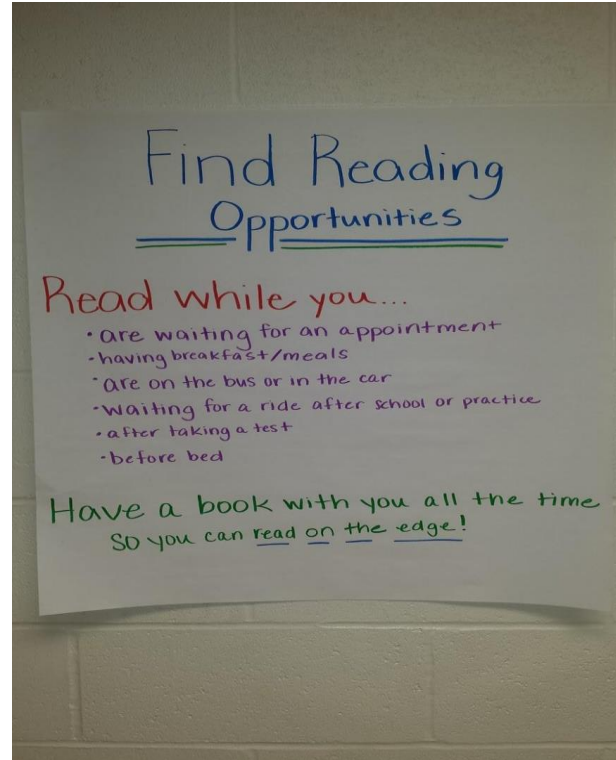 Find Reading
Opportunities
Read while you...
• are waiting for an appointment
• having breakfast/meals
• are on the bus or in the car
• waiting for a ride after school or practice
• after taking a test
• before bed
Have a book with you all the time
so you can read on the edge!